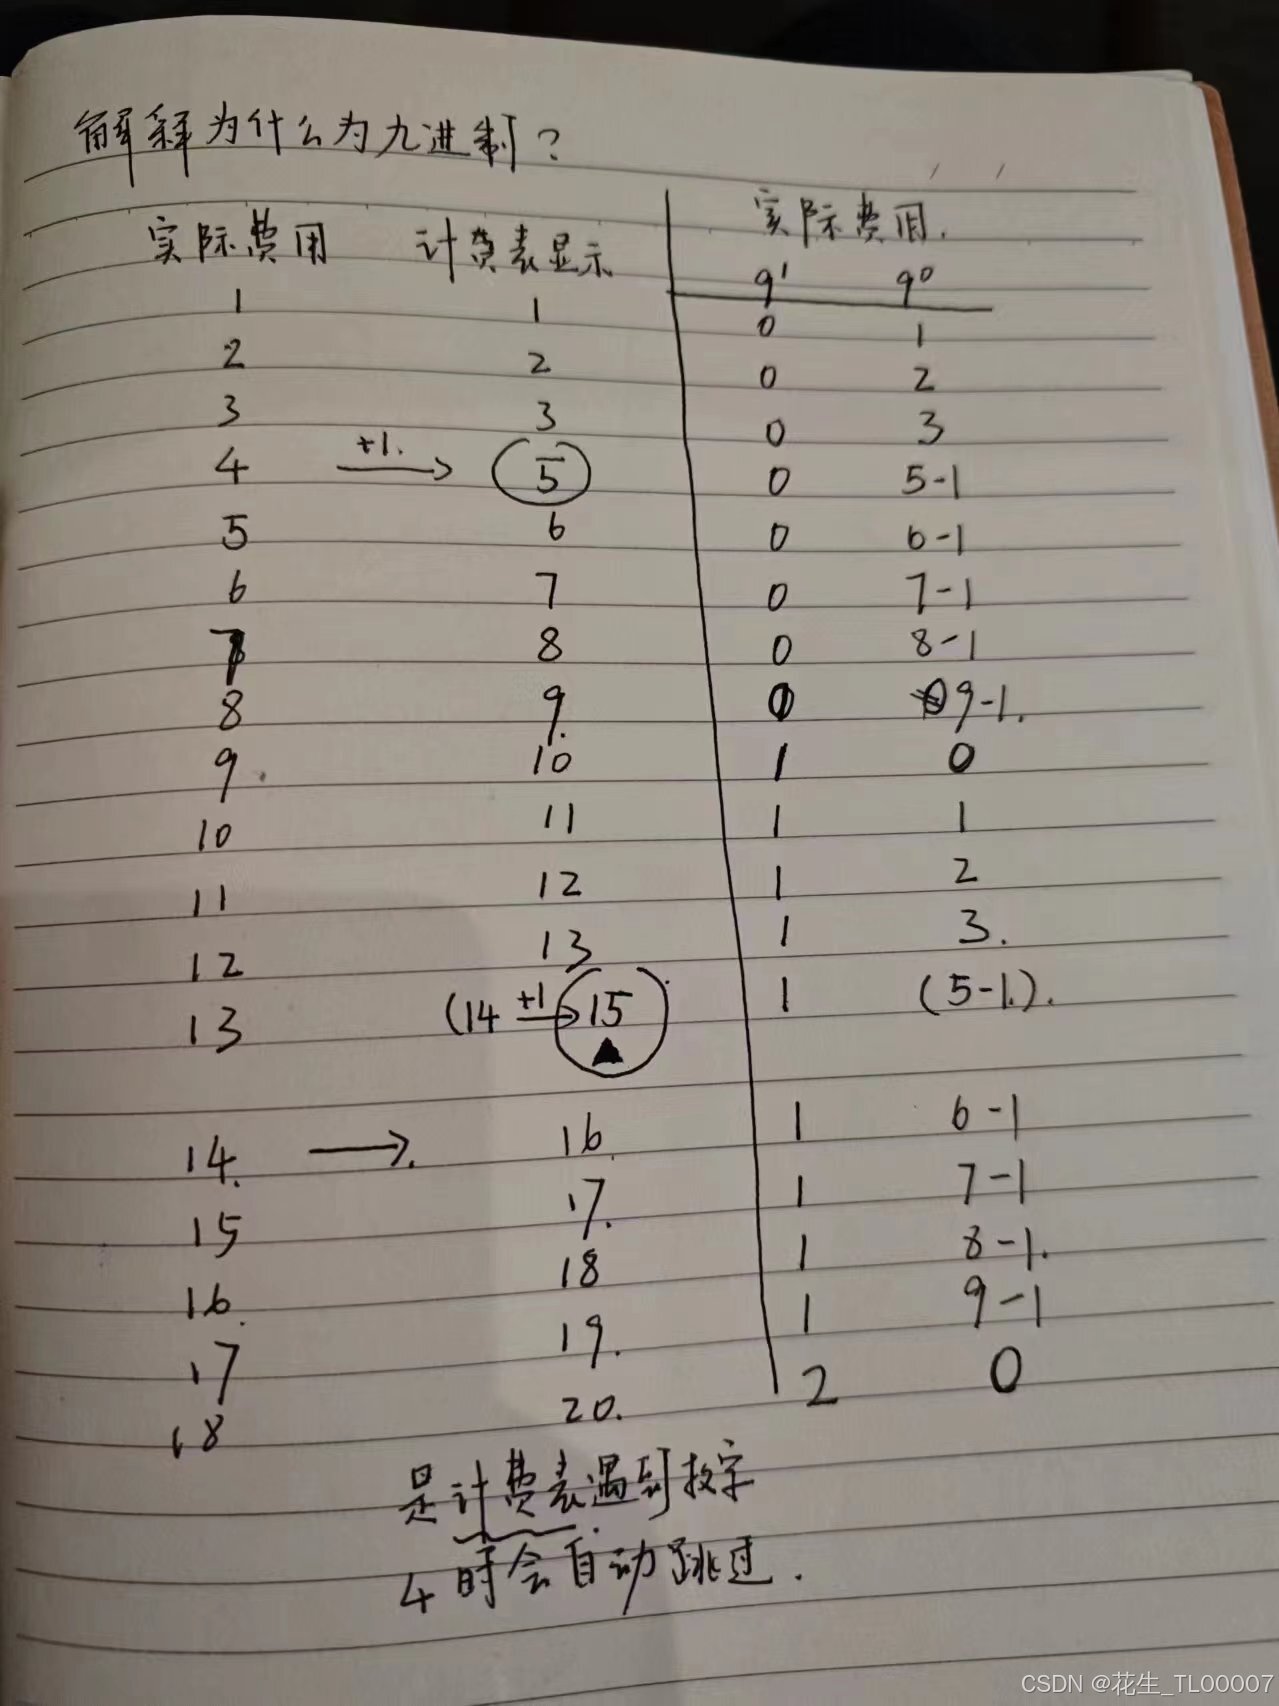 解释为什么为九进制?
实际费用 计费表显示 实际费用.
9¹ 9⁰
1 1 0 1
2 2 0 2
3 3 0 3
4 +1. → 5 0 5-1
5 6 0 6-1
6 7 0 7-1
7 8 0 8-1
8 9. 0 9-1.
9. 10 1 0
10 11 1 1
11 12 1 2
12 13 1 3.
13 (14 +1 → 15 ▲ 1 (5-1.).
14. →. 16. 1 6-1
15 17. 1 7-1
16. 18 1 8-1.
17 19. 1 9-1
18 20. 2 0
是计费表遇到数字
4时会自动跳过.
CSDN @花生_TL00007